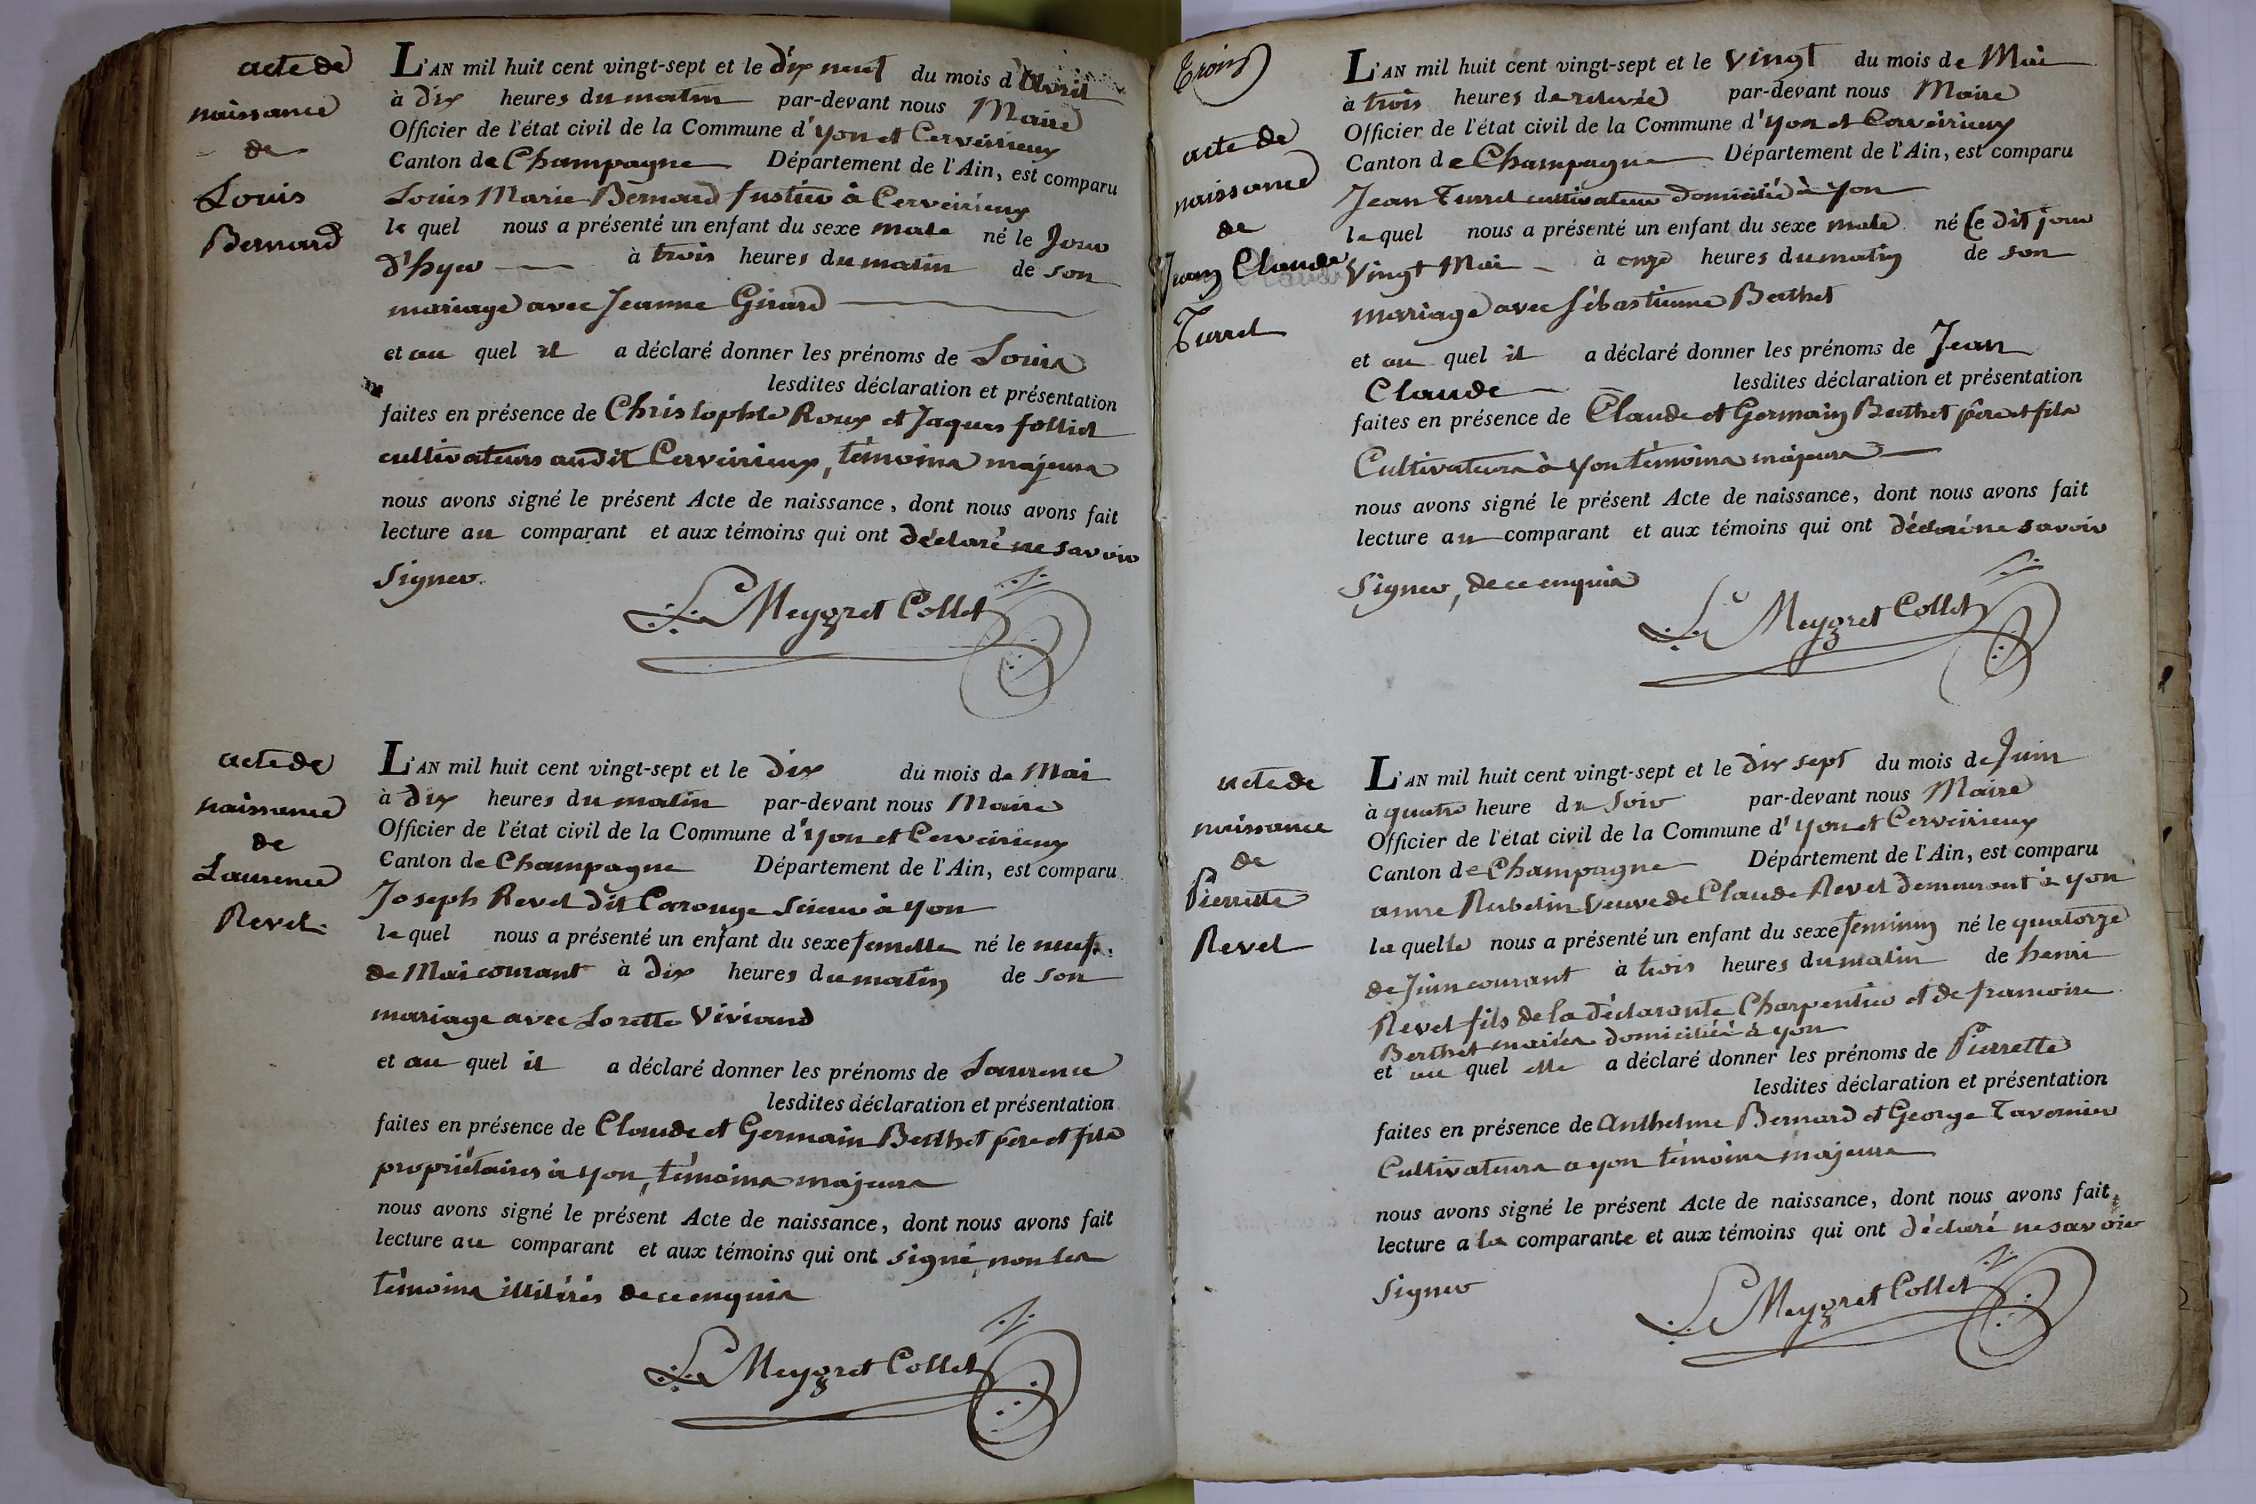 acte de
naissance
de
Louis
Bernard
L'AN mil huit cent vingt-sept et le dix neuf du mois d'Avril
à dix heures du matin par-devant nous Maire
Officier de l'état civil de la Commune d'yon et Cerveirieux
Canton de Champagne Département de l'Ain, est comparu
Louis Marie Bernard fustier à Cerveirieux
le quel nous a présenté un enfant du sexe male né le Jour
d'hyer à trois heures du matin de son
mariage avec Jeanne Girard
et au quel il a déclaré donner les prénoms de Louis
lesdites déclaration et présentation
faites en présence de Christophle Roux et Jaques folliet
cultivateurs audit Cerveirieux, témoins majeurs
nous avons signé le présent Acte de naissance, dont nous avons fait
lecture au comparant et aux témoins qui ont déclaré ne savoir
signer.
L Meygret Collet
acte de
naissance
de
Laurence
Revet
L'AN mil huit cent vingt-sept et le dix du mois de Mai
à dix heures du matin par-devant nous Maire
Officier de l'état civil de la Commune d'yon et Cerveirieux
Canton de Champagne Département de l'Ain, est comparu
Joseph Revet dit Carouge scieur à yon
le quel nous a présenté un enfant du sexe femelle né le neuf
de Mai courant à dix heures du matin de son
mariage avec Lorette Viviand
et au quel il a déclaré donner les prénoms de Laurence
lesdites déclaration et présentation
faites en présence de Claude et Germain Berthet père et fils
propriétaires à yon, témoins majeurs
nous avons signé le présent Acte de naissance, dont nous avons fait
lecture au comparant et aux témoins qui ont signé, non les
témoins illitérés de ce enquis
L Meygret Collet
Trois
acte de
naissance
de
Jean Claude
Turrel
L'AN mil huit cent vingt-sept et le vingt du mois de Mai
à trois heures de relevée par-devant nous Maire
Officier de l'état civil de la Commune d'yon et Cerveirieux
Canton de Champagne Département de l'Ain, est comparu
Jean Turrel cultivateur domicilié à yon
le quel nous a présenté un enfant du sexe male né Ce dit jour
Vingt Mai à onze heures du matin de son
mariage avec Sébastienne Berthet
et au quel il a déclaré donner les prénoms de Jean
Claude lesdites déclaration et présentation
faites en présence de Claude et Germain Berthet père et fils
Cultivateurs à yon témoins majeurs
nous avons signé le présent Acte de naissance, dont nous avons fait
lecture au comparant et aux témoins qui ont déclaré ne savoir
signer, de ce enquis
L Meygret Collet
acte de
naissance
de
Pierrette
Revet
L'AN mil huit cent vingt-sept et le dix sept du mois de Juin
à quatre heure du soir par-devant nous Maire
Officier de l'état civil de la Commune d'yon et Cerveirieux
Canton de Champagne Département de l'Ain, est comparu
anne Rubelin Veuve de Claude Revet demeurant à yon
la quelle nous a présenté un enfant du sexe feminin né le quatorze
de Juin courant à trois heures du matin de henri
Revet fils de la déclarante Charpentier et de francoise
Berthet mariés domiciliés à yon
et au quel elle a déclaré donner les prénoms de Pierrette
lesdites déclaration et présentation
faites en présence de Anthelme Bernard et George Tavernier
Cultivateurs a yon témoins majeurs
nous avons signé le présent Acte de naissance, dont nous avons fait
lecture a la comparante et aux témoins qui ont déclaré ne savoir
signer
L Meygret Collet